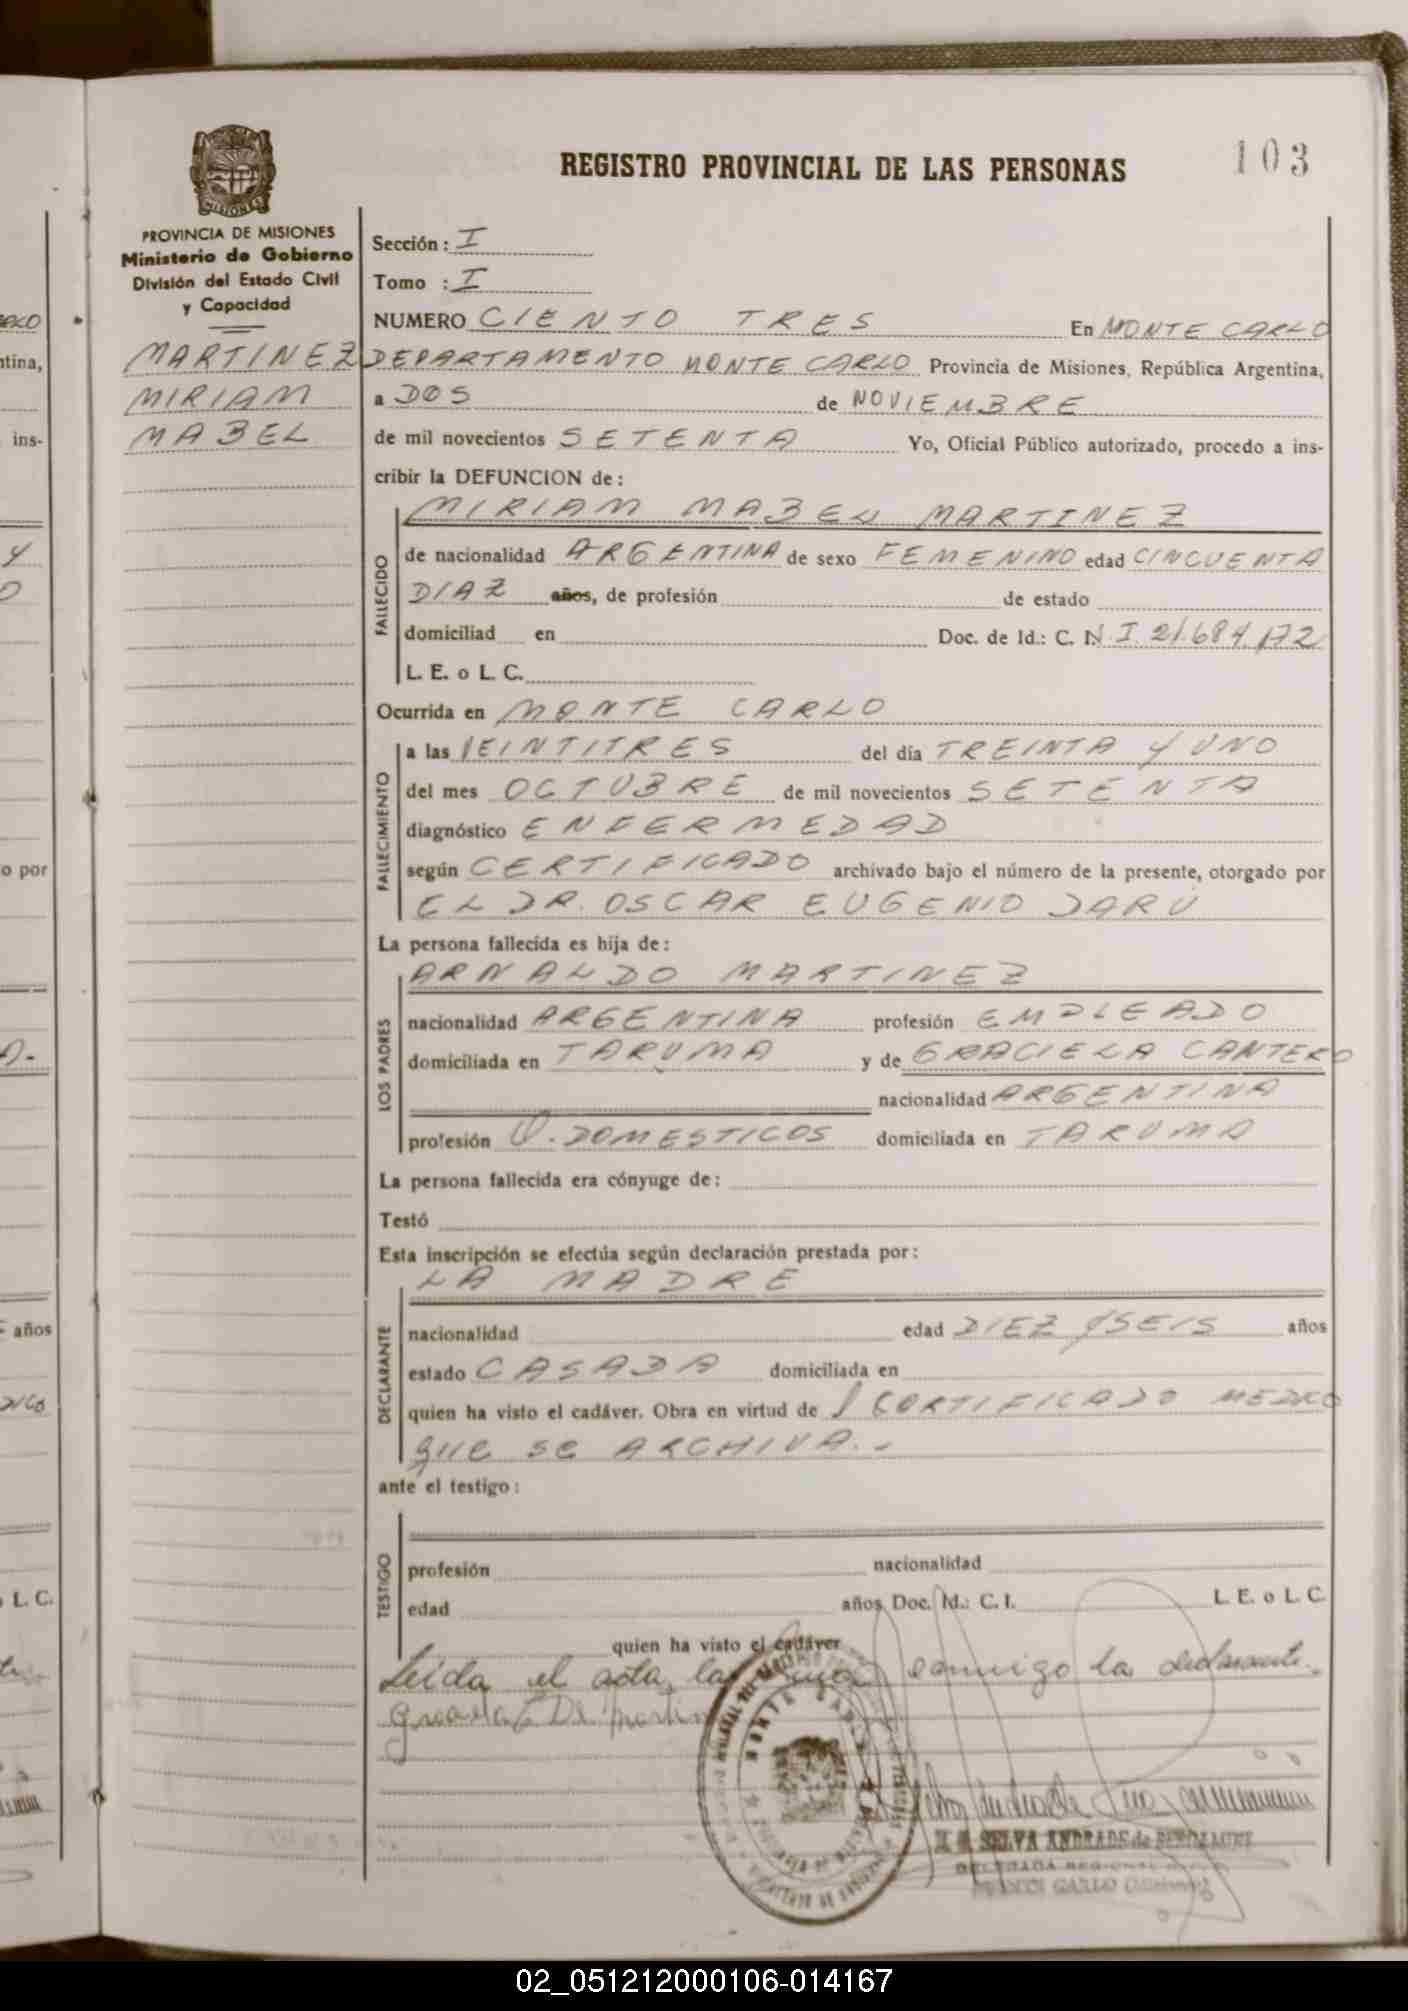 REGISTRO PROVINCIAL DE LAS PERSONAS
103
MISIONES
PROVINCIA DE MISIONES
Ministerio de Gobierno
División del Estado Civil
y Capacidad
MARTINEZ
MIRIAM
MABEL
Sección: I
Tomo : I
NUMERO CIENTO TRES En MONTE CARLO
DEPARTAMENTO MONTE CARLO Provincia de Misiones, República Argentina,
a DOS de NOVIEMBRE
de mil novecientos SETENTA Yo, Oficial Público autorizado, procedo a ins-
cribir la DEFUNCION de:
MIRIAM MABEL MARTINEZ
FALLECIDO
de nacionalidad ARGENTINA de sexo FEMENINO edad CINCUENTA
DIAZ años, de profesión de estado
domiciliad en Doc. de Id.: C. N.I 21.684.172
L. E. o L. C.
Ocurrida en MONTE CARLO
FALLECIMIENTO
a las VEINTITRES del día TREINTA Y UNO
del mes OCTUBRE de mil novecientos SETENTA
diagnóstico ENFERMEDAD
según CERTIFICADO archivado bajo el número de la presente, otorgado por
EL DR. OSCAR EUGENIO DARU
La persona fallecida es hija de:
ARNALDO MARTINEZ
LOS PADRES
nacionalidad ARGENTINA profesión EMPLEADO
domiciliada en TARUMA y de GRACIELA CANTERO
nacionalidad ARGENTINA
profesión Q. DOMESTICOS domiciliada en TARUMA
La persona fallecida era cónyuge de:
Testó
Esta inscripción se efectúa según declaración prestada por:
LA MADRE
DECLARANTE
nacionalidad edad DIEZ Y SEIS años
estado CASADA domiciliada en
quien ha visto el cadáver. Obra en virtud de 1 CERTIFICADO MEDICO
QUE SE ARCHIVA.-
ante el testigo:
TESTIGO
profesión nacionalidad
edad años Doc. Id.: C. I. L. E. o L. C.
quien ha visto el cadáver
Leída el acta, la conmigo la declarante.
MONTE CARLO
SELVA ANDRADE de
DELEGADA
MONTE CARLO (Misiones)
tina,
ins-
o por
años
L. C.
02_051212000106-014167